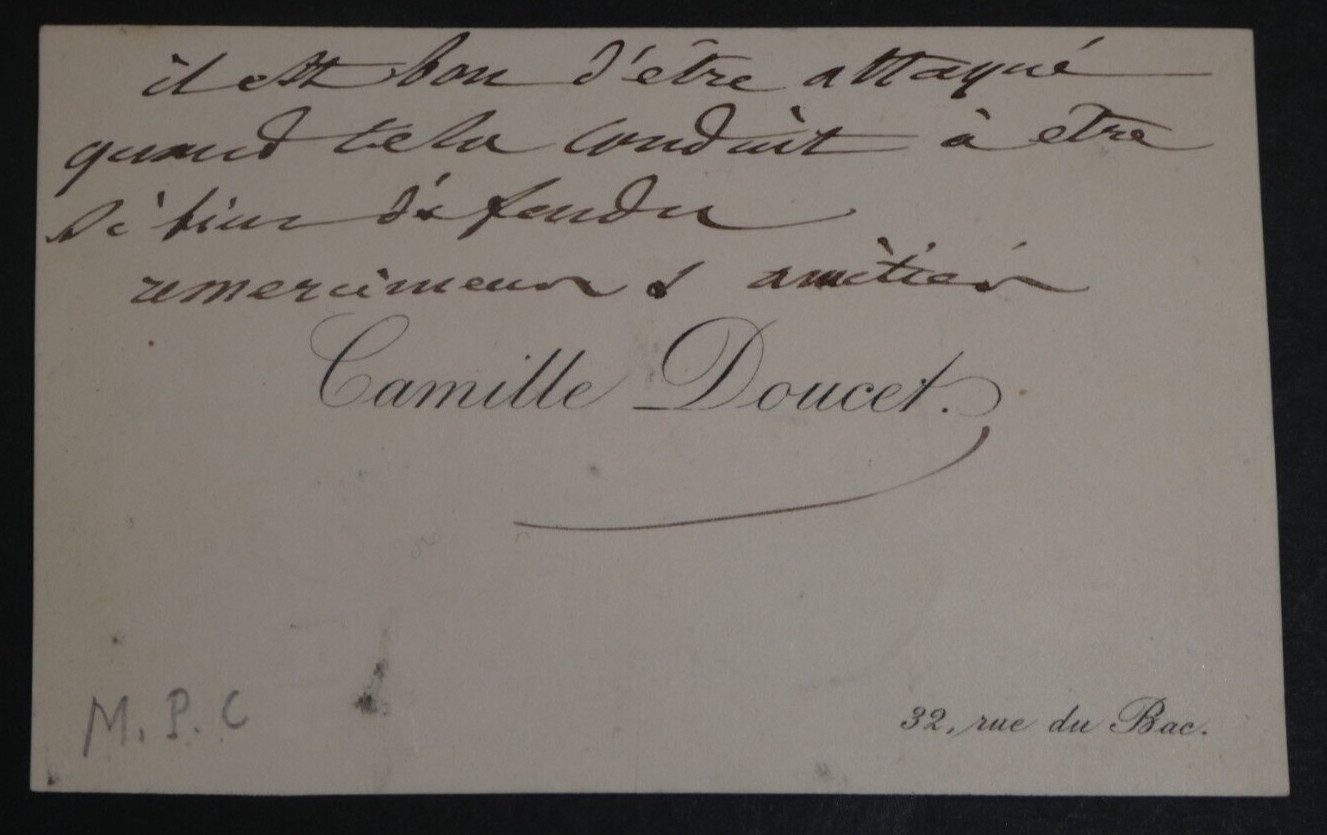 il est bon d'être attaqué
quand cela conduit à être
si bien défendu
remerciemens & amitiés
Camille Doucet.
M. P. C
32, rue du Bac.